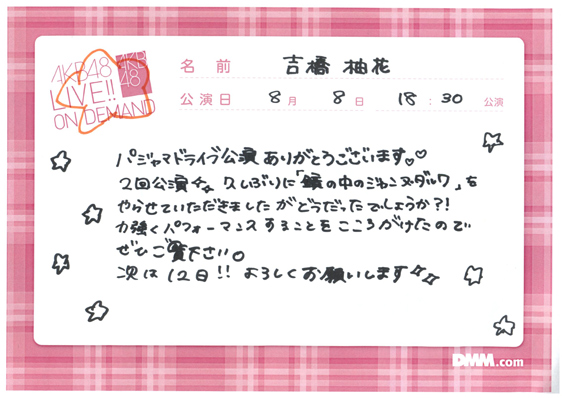 AKB48
LIVE!!
ON DEMAND
AKB
48
名前 吉橋 柚花
公演日 8月 8日 18:30 公演
パジャマドライブ公演ありがとうございます♡♡
2回公演々。久しぶりに「鏡の中のジャンヌ・ダルク」を
やらせていただきましたがどうだったでしょうか?!
力強くパフォーマンスすることをこころがけたので
ぜひご覧下さい。
次は12日!! よろしくお願いします
DMM.com